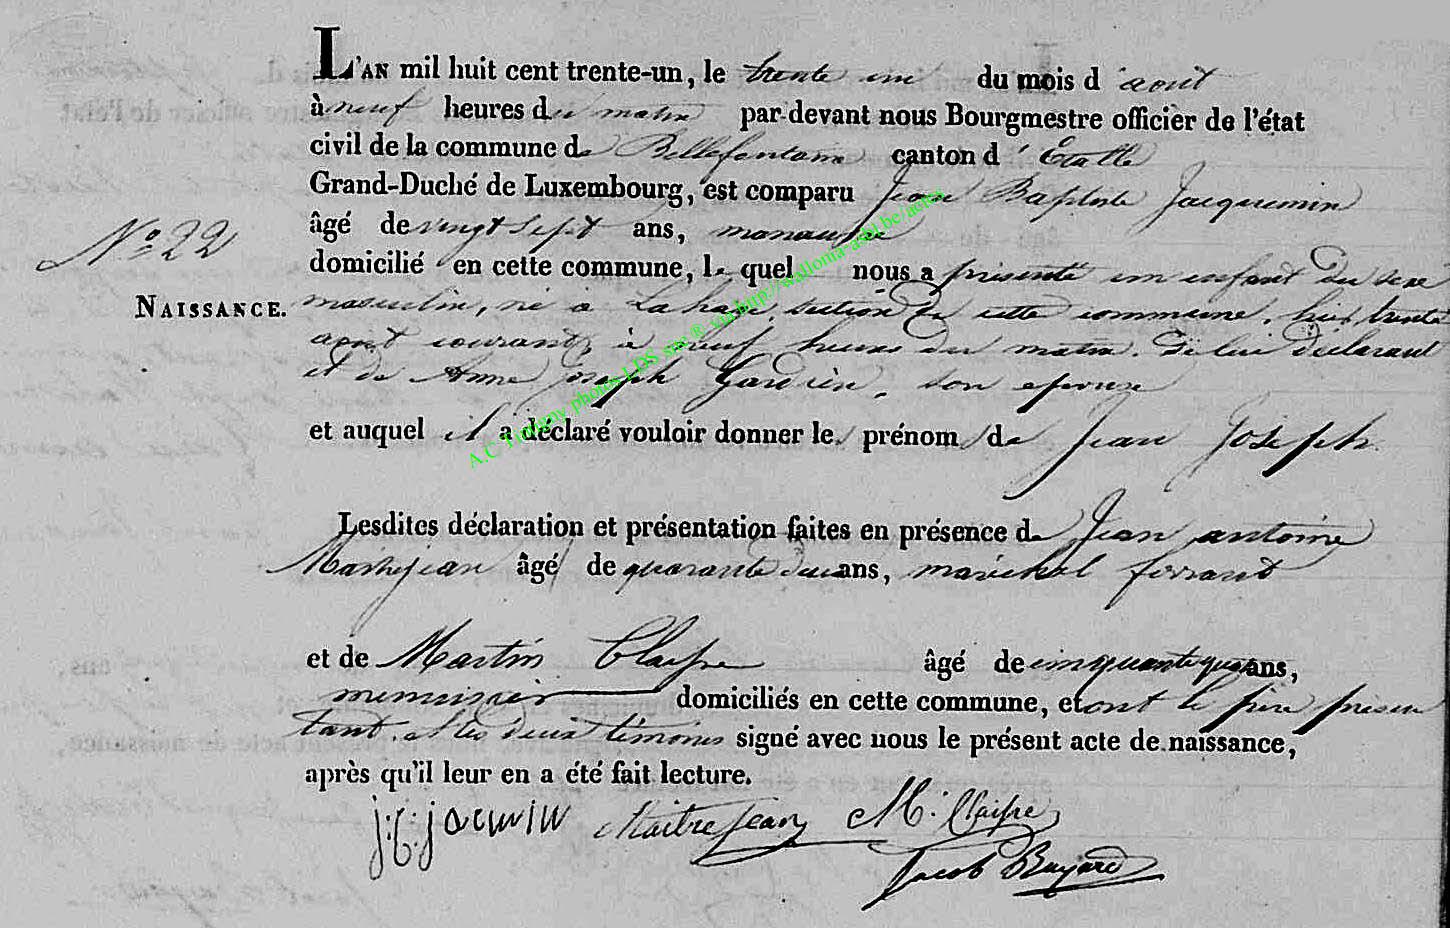 L'AN mil huit cent trente-un, le trente un du mois d'aout
à neuf heures du matin par-devant nous Bourgmestre officier de l'état
civil de la commune de Bellefontaine canton d'Etalle
Grand-Duché de Luxembourg, est comparu Jean Baptiste Jacquemin
âgé de vingt sept ans, manœuvre
N° 22
domicilié en cette commune, le quel nous a présenté un enfant du sexe
NAISSANCE.
masculin, né à Lahage, section de cette commune, hier, trente
aout courant, à neuf heures du matin. De lui déclarant
et de Anne joseph son epouse
et auquel il a déclaré vouloir donner les prénoms de Jean Joseph
Lesdites déclaration et présentation faites en présence de Jean antoine
Maitrejean âgé de quarante deux ans, maréchal ferrant
et de Martin Claisse âgé de cinquante quatre ans,
menuisier domiciliés en cette commune, et ont le père présen
tant et les deux témoins signé avec nous le présent acte de naissance,
après qu'il leur en a été fait lecture.
j:B: jacmin MaitreJean M. Claisse
Jacob Buyard
A.C Tintigny photos LDS site ® via http://wallonia-asbl.be/actes